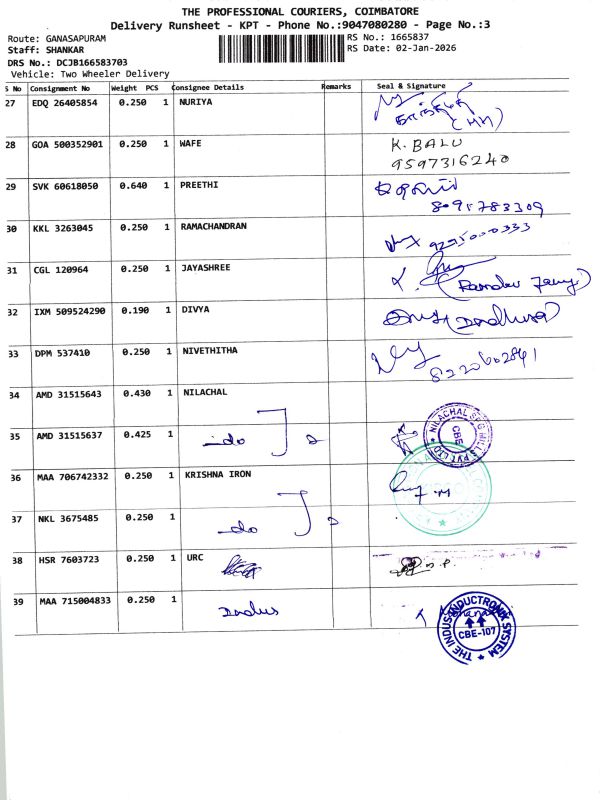 THE PROFESSIONAL COURIERS, COIMBATORE
Delivery Runsheet - KPT - Phone No.:9047080280 - Page No.:3
Route: GANASAPURAM
RS No.: 1665837
Staff: SHANKAR
RS Date: 02-Jan-2026
DRS No.: DCJB166583703
Vehicle: Two Wheeler Delivery
S No Consignment No Weight PCS Consignee Details Remarks Seal & Signature
27 EDQ 26405854 0.250 1 NURIYA
28 GOA 500352901 0.250 1 WAFE K. BALU
9597316240
29 SVK 60618050 0.640 1 PREETHI
8091783309
30 KKL 3263045 0.250 1 RAMACHANDRAN
9295000333
31 CGL 120964 0.250 1 JAYASHREE
32 IXM 509524290 0.190 1 DIVYA
33 DPM 537410 0.250 1 NIVETHITHA
34 AMD 31515643 0.430 1 NILACHAL
35 AMD 31515637 0.425 1 do
NILACHAL CBE
36 MAA 706742332 0.250 1 KRISHNA IRON
37 NKL 3675485 0.250 1 do
38 HSR 7603723 0.250 1 URC
39 MAA 715004833 0.250 1 Indus
THE INDUS INDUCTRONIX SYSTEM
CBE-107